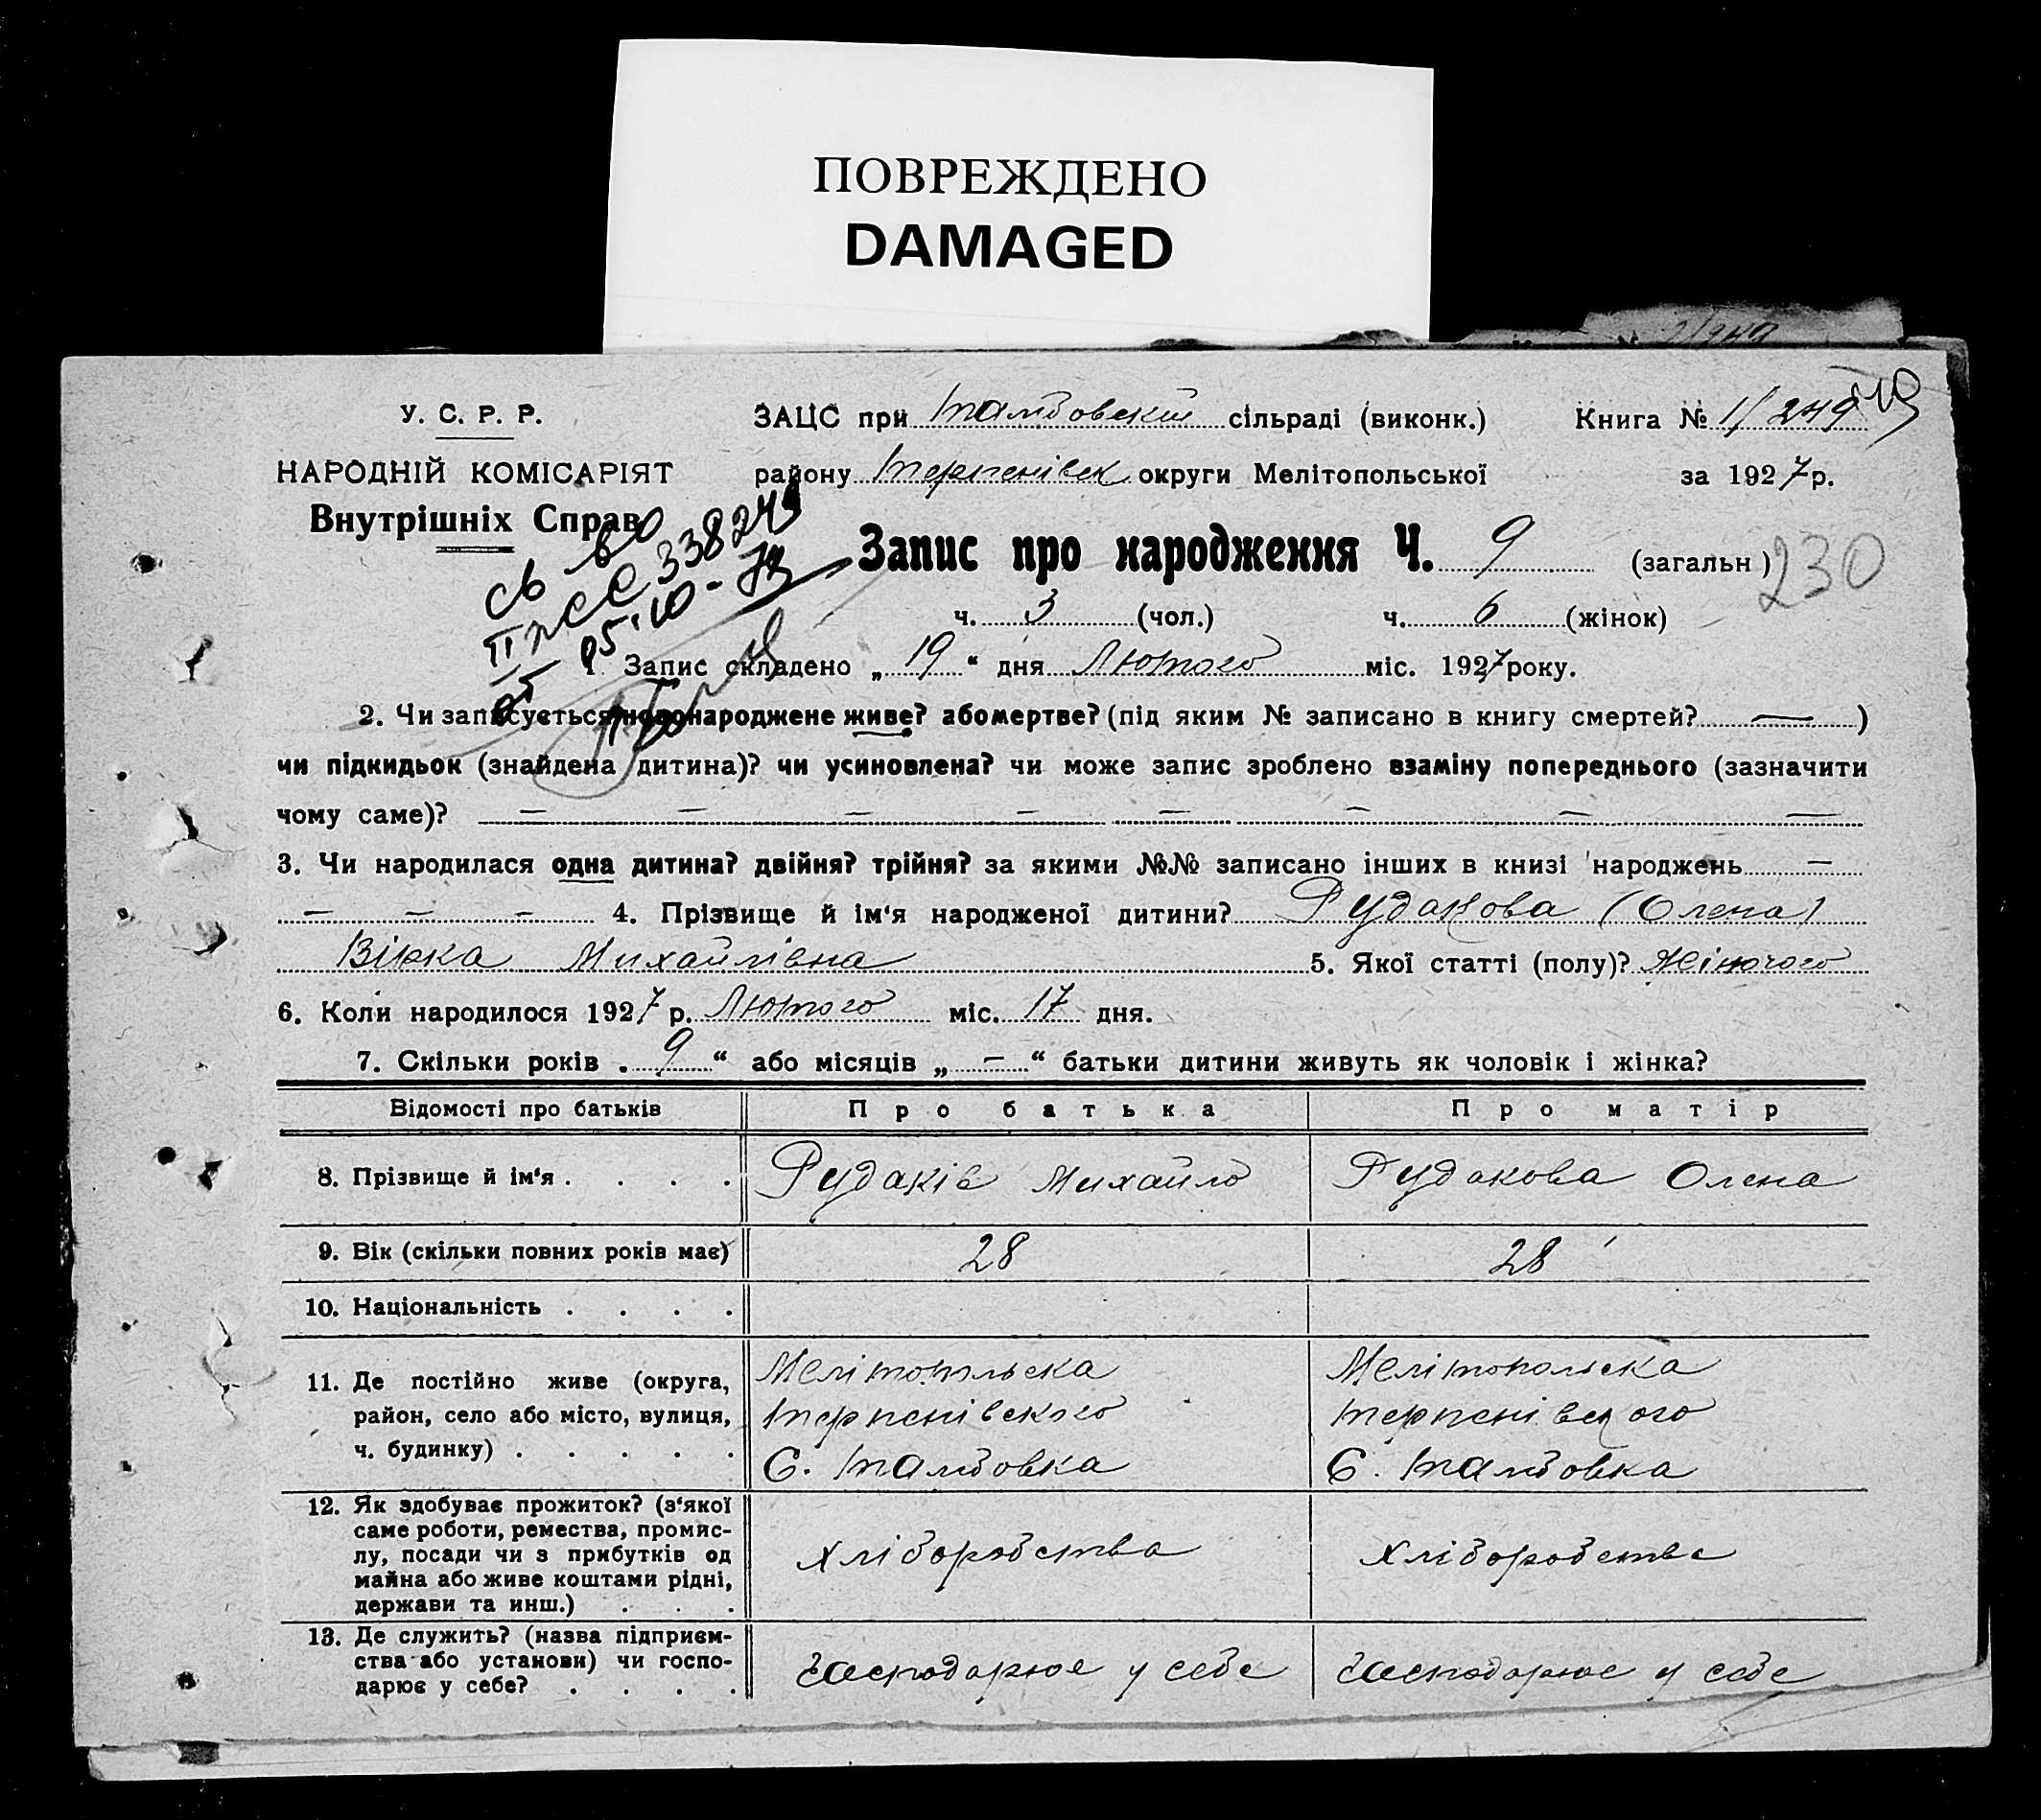 ПОВРЕЖДЕНО
DAMAGED
У. С. Р. Р.
НАРОДНІЙ КОМІСАРІЯТ
Внутрішніх Справ
ЗАЦС при Тамбовській сільраді (виконк.)
району Терпенівск округи Мелітопольської
Книга № 1/249
за 1927 р.
Запис про народження Ч. 9 (загальн)
230
ч. 3 (чол.) ч. 6 (жінок)
св во
II ПСС 338249
25-10-73
1. Запис складено „19“ дня Лютого міс. 1927 року.
2. Чи записується новонароджене живе? або мертве? (під яким № записано в книгу смертей? — )
чи підкидьок (знайдена дитина)? чи усиновлена? чи може запис зроблено взаміну попереднього (зазначити
чому саме)? — — — — — — — —
3. Чи народилася одна дитина? двійня? трійня? за якими №№ записано інших в книзі народжень —
— — — 4. Прізвище й ім‘я народженої дитини? Рудакова (Олена)
Вірка Михайлівна 5. Якої статті (полу)? Жіночого
6. Коли народилося 1927 р. Лютого міс. 17 дня.
7. Скільки років „9“ або місяців „—“ батьки дитини живуть як чоловік і жінка?
Відомості про батьків Про батька Про матір
8. Прізвище й ім‘я . . . . Рудаків Михайло Рудакова Олена
9. Вік (скільки повних років має) 28 28
10. Національність . . . .
11. Де постійно живе (округа,
район, село або місто, вулиця,
ч. будинку) . . . . .
Мелітопольска
Терпенівского
С. Тамбовка
Мелітопольска
Терпенівского
С. Тамбовка
12. Як здобуває прожиток? (з‘якої
саме роботи, ремества, промис-
лу, посади чи з прибутків од
майна або живе коштами рідні,
держави та инш.) . . .
Хліборобства
Хліборобства
13. Де служить? (назва підприєм-
ства або установи) чи госпо-
дарює у себе? . . . .
Господарює у себе
Господарює у себе